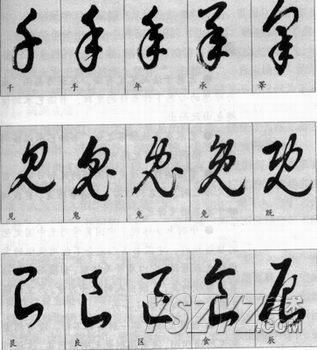 千 手 年 承 睪
見 鬼 兔 免 既
艮 良 区 食 辰
YSZYZ